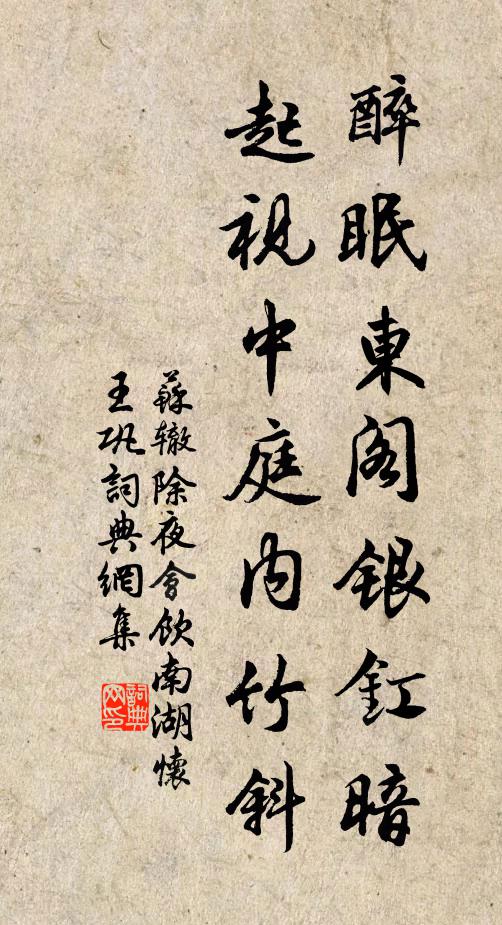 醉眠東閣銀釭暗
起視中庭內竹斜
蘇轍除夜會飲南湖懷
王巩詞典網集
詞典网印